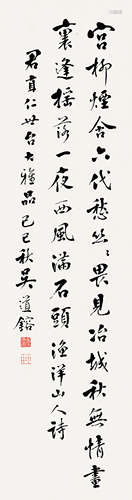 宮柳煙含六代愁絲〻畏見冶城秋無情畫
裏逢搖落一夜西風滿石頭漁洋山人詩
君直仁世台大雅品己巳秋吳道鎔